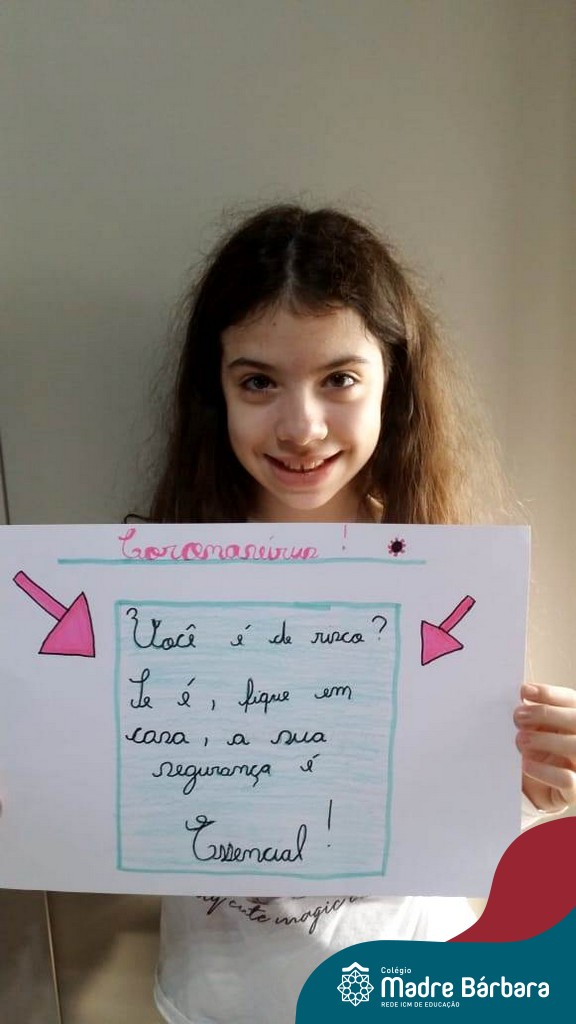 Coronavírus !
Você é de risco?
Se é, fique em
casa, a sua
segurança é
Essencial!
cute magic
Colégio
Madre Bárbara
REDE ICM DE EDUCAÇÃO